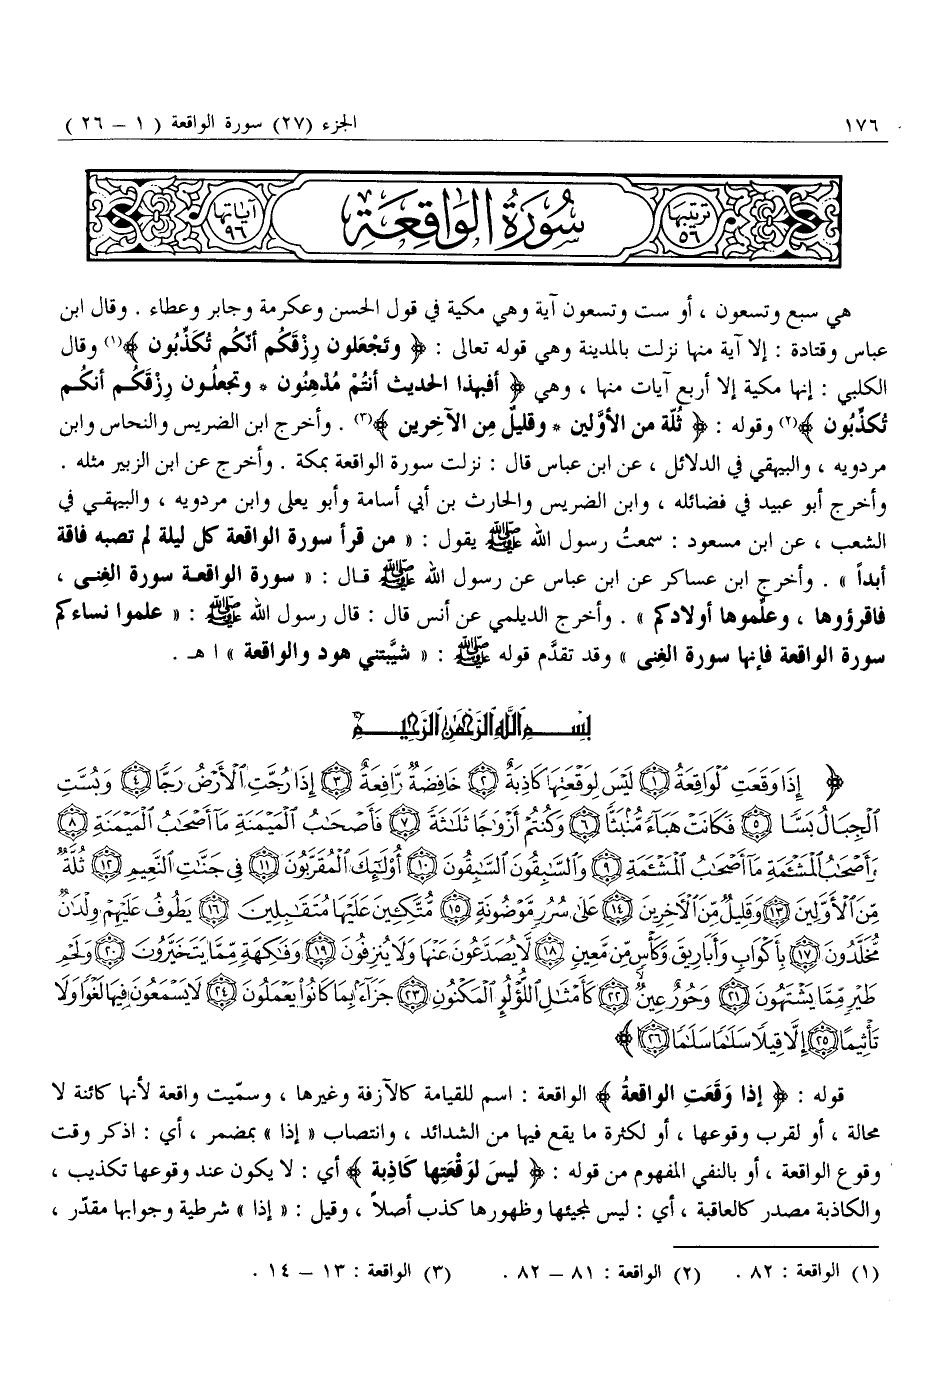 ١٧٦ الجزء (٢٧) سورة الواقعة ( ١ – ٢٦ )
ترتيبها ٥٦ سُورَةُ الوَاقِعَةِ آياتها ٩٦
هي سبع وتسعون ، أو ست وتسعون آية وهي مكية في قول الحسن وعكرمة وجابر وعطاء . وقال ابن
عباس وقتادة : إلا آية منها نزلت بالمدينة وهي قوله تعالى : ﴿ وتَجْعَلون رِزْقَكُم أنّكُم تُكَذِّبُون ﴾(١) وقال
الكلبي : إنها مكية إلا أربع آيات منها ، وهي ﴿ أفبهذا الحديث أنتُمْ مُدْهِنُون * وتجعلُـون رِزْقَكُـم أنكُـم
تُكذِّبُون ﴾(٢) وقوله : ﴿ ثُلّة من الأوَّلين * وقليلٌ مِن الآخِرين ﴾(٣) . وأخرج ابن الضريس والنحاس وابن
مردويه ، والبيهقي في الدلائل ، عن ابن عباس قال : نزلت سورة الواقعة بمكة . وأخرج عن ابن الزبير مثله .
وأخرج أبو عبيد في فضائله ، وابن الضريس والحارث بن أبي أسامة وأبو يعلى وابن مردويه ، والبيهقـي في
الشعب ، عن ابن مسعود : سمعتُ رسول الله ﷺ يقول : « من قرأ سورة الواقعة كل ليلة لم تصبه فاقة
أبداً » . وأخرج ابن عساكر عن ابن عباس عن رسول الله ﷺ قـال : « سورة الواقعـة سورة الغِنـى ،
فاقرؤوها ، وعلّموها أولادكم » . وأخرج الديلمي عن أنس قال : قال رسول الله ﷺ : « علموا نساءكم
سورة الواقعة فإنها سورة الغِنى » وقد تقدَّم قوله ﷺ : « شيَّبتني هود والواقعة » ا هـ .
بِسْـــمِ اللَّهِ الرَّحْمَٰنِ الرَّحِيـــمِ
﴿ إِذَا وَقَعَتِ الْوَاقِعَةُ ١ لَيْسَ لِوَقْعَتِهَا كَاذِبَةٌ ٢ خَافِضَةٌ رَّافِعَةٌ ٣ إِذَا رُجَّتِ الْأَرْضُ رَجًّا ٤ وَبُسَّتِ
الْجِبَالُ بَسًّا ٥ فَكَانَتْ هَبَاءً مُّنْبَثًّا ٦ وَكُنتُمْ أَزْوَاجًا ثَلَاثَةً ٧ فَأَصْحَابُ الْمَيْمَنَةِ مَا أَصْحَابُ الْمَيْمَنَةِ ٨
وَأَصْحَابُ الْمَشْئَمَةِ مَا أَصْحَابُ الْمَشْئَمَةِ ٩ وَالسَّابِقُونَ السَّابِقُونَ ١٠ أُولَٰئِكَ الْمُقَرَّبُونَ ١١ فِي جَنَّاتِ النَّعِيمِ ١٢ ثُلَّةٌ
مِّنَ الْأَوَّلِينَ ١٣ وَقَلِيلٌ مِّنَ الْآخِرِينَ ١٤ عَلَىٰ سُرُرٍ مَّوْضُونَةٍ ١٥ مُّتَّكِئِينَ عَلَيْهَا مُتَقَابِلِينَ ١٦ يَطُوفُ عَلَيْهِمْ وِلْدَانٌ
مُّخَلَّدُونَ ١٧ بِأَكْوَابٍ وَأَبَارِيقَ وَكَأْسٍ مِّن مَّعِينٍ ١٨ لَّا يُصَدَّعُونَ عَنْهَا وَلَا يُنزِفُونَ ١٩ وَفَاكِهَةٍ مِّمَّا يَتَخَيَّرُونَ ٢٠ وَلَحْمِ
طَيْرٍ مِّمَّا يَشْتَهُونَ ٢١ وَحُورٌ عِينٌ ٢٢ كَأَمْثَالِ اللُّؤْلُؤِ الْمَكْنُونِ ٢٣ جَزَاءً بِمَا كَانُوا يَعْمَلُونَ ٢٤ لَا يَسْمَعُونَ فِيهَا لَغْوًا وَلَا
تَأْثِيمًا ٢٥ إِلَّا قِيلًا سَلَامًا سَلَامًا ٢٦ ﴾
قوله : ﴿ إذا وَقَعَتِ الواقعةُ ﴾ الواقعة : اسم للقيامة كالآزفة وغيرها ، وسمّيت واقعة لأنها كائنة لا
محالة ، أو لقرب وقوعها ، أو لكثرة ما يقع فيها من الشدائد ، وانتصاب « إذا » بمضمر ، أي : اذكر وقت
وقوع الواقعة ، أو بالنفي المفهوم من قوله : ﴿ ليسَ لوَقْعَتِها كَاذِبة ﴾ أي : لا يكون عند وقوعها تكذيب ،
والكاذبة مصدر كالعاقبة ، أي : ليس لمجيئها وظهورها كذب أصلاً ، وقيل : « إذا » شرطية وجوابها مقدّر ،
(١) الواقعة : ٨٢ . (٢) الواقعة : ٨١ – ٨٢ . (٣) الواقعة : ١٣ – ١٤ .